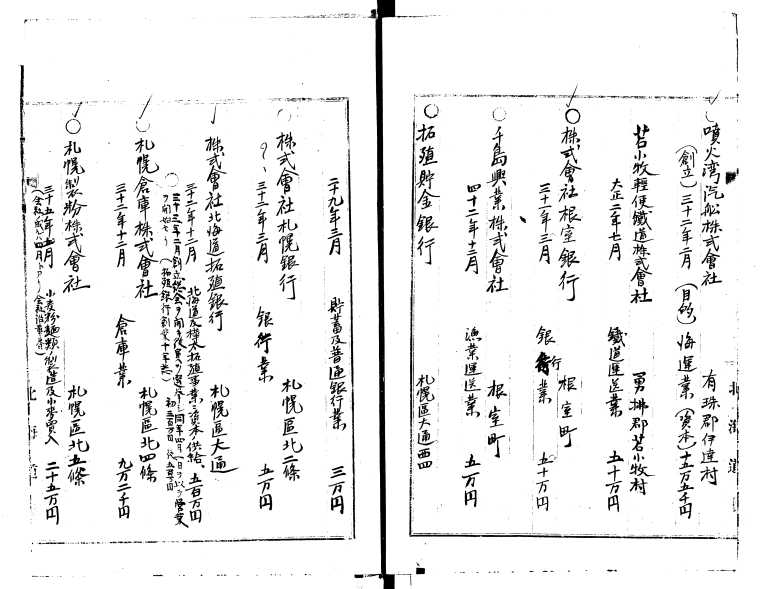 噴火湾汽舩株式會社　有珠郡伊達村
(創立)三十二年二月　(目的)海運業　(資本)十五万五千円
苫小牧輕便鐵道株式會社　勇拂郡苫小牧村
大正二年七月　鐵道運送業　五十万円
〇株式會社根室銀行　根室町
三十年三月　銀行業　五十万円
〇千島興業株式會社　根室町
四十二年十二月　漁業運送業　五万円
〇拓殖貯金銀行　札幌區大通西四
二十九年三月　貯蓄及普通銀行業　三万円
株式會社札幌銀行　札幌區北二條
三十二年三月　銀行業　五万円
株式會社北海道拓殖銀行　札幌區大通
三十二年十二月　北海道及樺太拓殖事業ニ資本ノ供給、五百万円
〇札幌倉庫株式會社　札幌區北四條
三十二年十二月　倉庫業　九万二千円
〇札幌製粉株式會社　札幌區北五條
三十五年　月　小麦粉麺類ノ製造及小麥買入　二十五万円
北海道